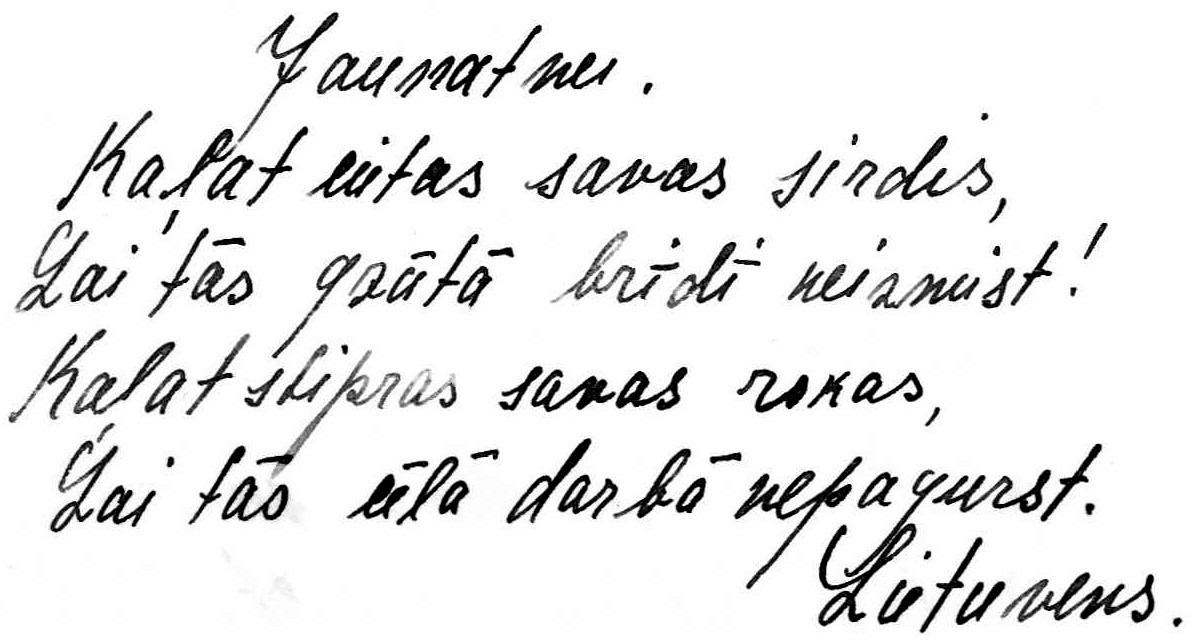 Jaunatnei.
Kaļat cietas savas sirdis,
Lai tās grūtā brīdī neizmist!
Kaļat stipras savas rokas,
Lai tās cēlā darbā nepagurst.
Lietuvens.